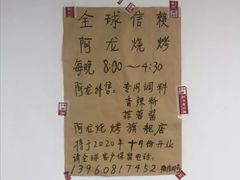 全球信赖
阿龙烧烤
每晚 8:00～4:30
阿龙外售：专用调料
青稞粉
蒜蓉酱
阿龙烧烤旗舰店
将于2020年10月份开业
请全球客户保留电话：
13960817452